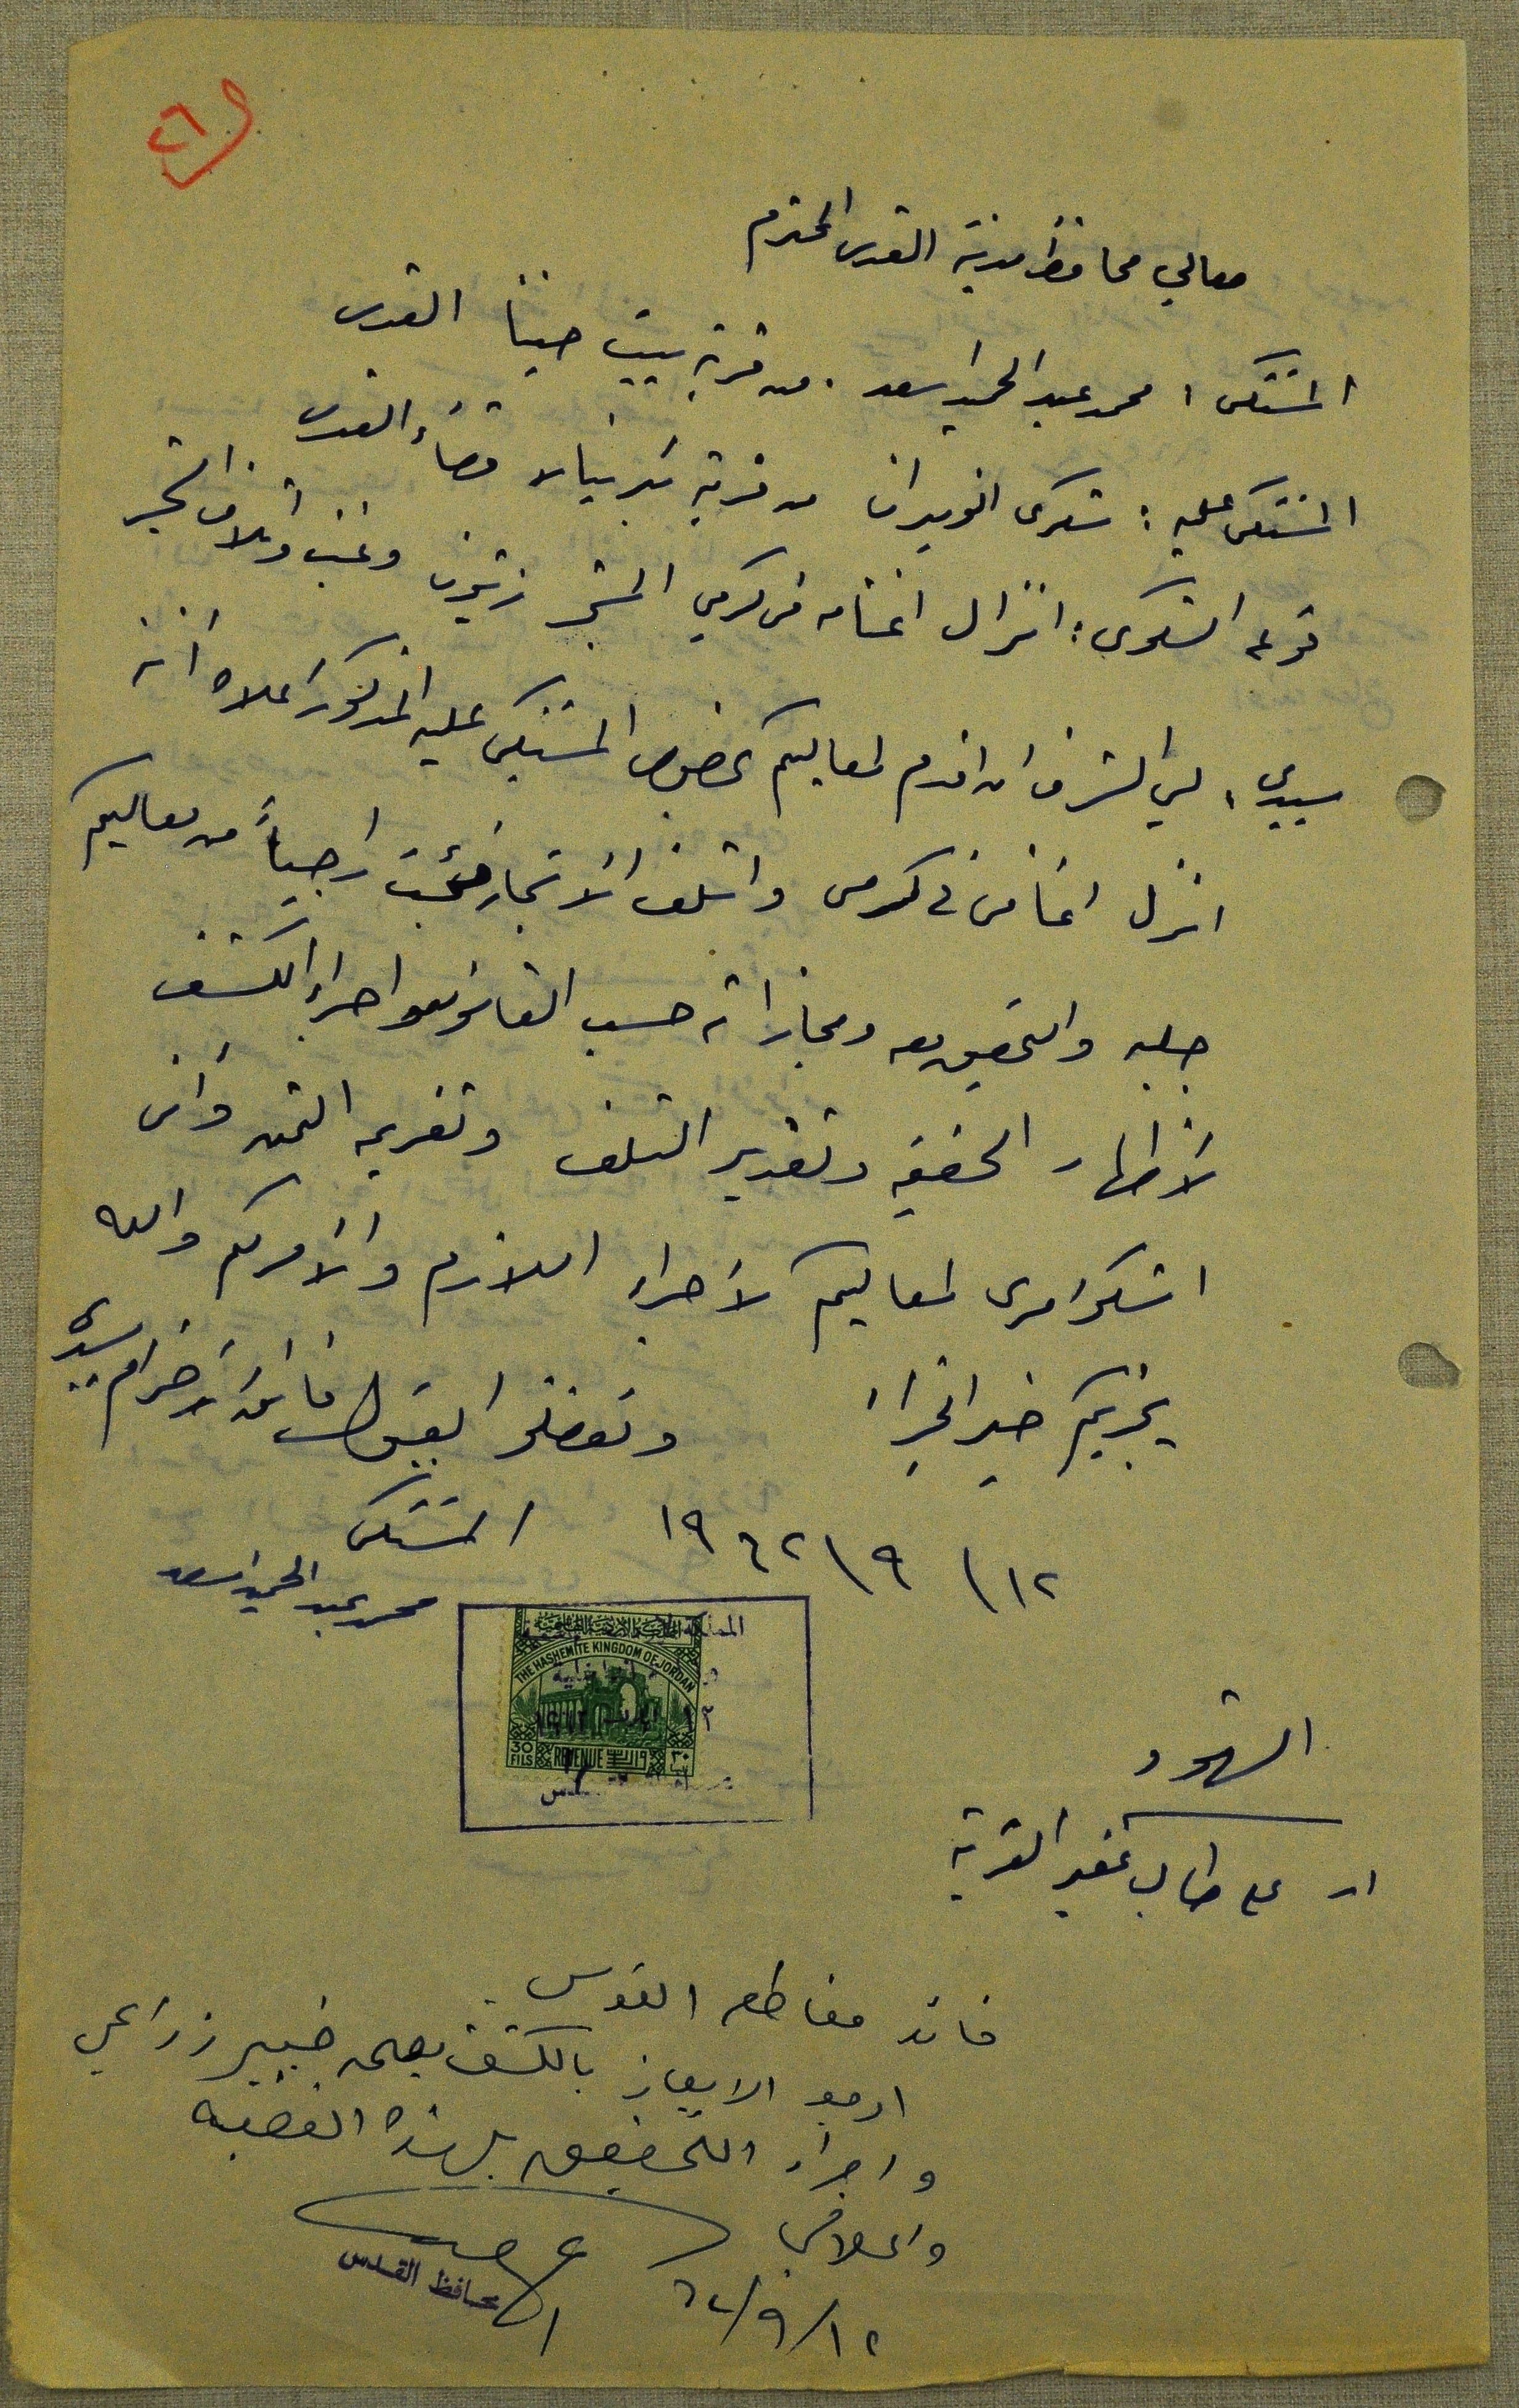 معالي محافظ مدينة القدس المحترم
المشتكى : محمد عبد الحميد اسعد . من قرية بيت حنينا القدس
المشتكى عليه : شكري من قرية بير نبالا قضاء القدس
نوع الشكوى : انزال اغنامه في كرمي المشجر زيتون وعنب واتلاف الشجر
سيدي ، لي الشرف ان اقدم لمعاليكم بخصوص المشتكى عليه المذكور اعلاه انه
انزل اغنامه في كرمي واتلف الاشجار فجئت راجياً من معاليكم
جلبه والتحقيق معه ومجازاته حسب القانون واجراء الكشف
لاظهار الحقيقه وتقدير التلف وتغريمه الثمن وانى
اشكو امرى لمعاليكم لاجراء اللازم والامر لكم والله
يجزيكم خير الجزاء وتفضلوا بقبول فائق الاحترام سيدي
١٢/٩/١٩٦٢ المشتكى
محمد عبد الحميد اسعد
المملكة الاردنية الهاشمية
THE HASHEMITE KINGDOM OF JORDAN
30 FILS REVENUE ٣٠
الشهود
١- علي طالب غفير القرية
قائد مقاطعه القدس
ارجو الايعاز بالكشف بمعرفة خبير زراعي
واجراء التحقيق بهذه القضيه
واعلامي
محافظ القدس
١٢/٩/٦٢